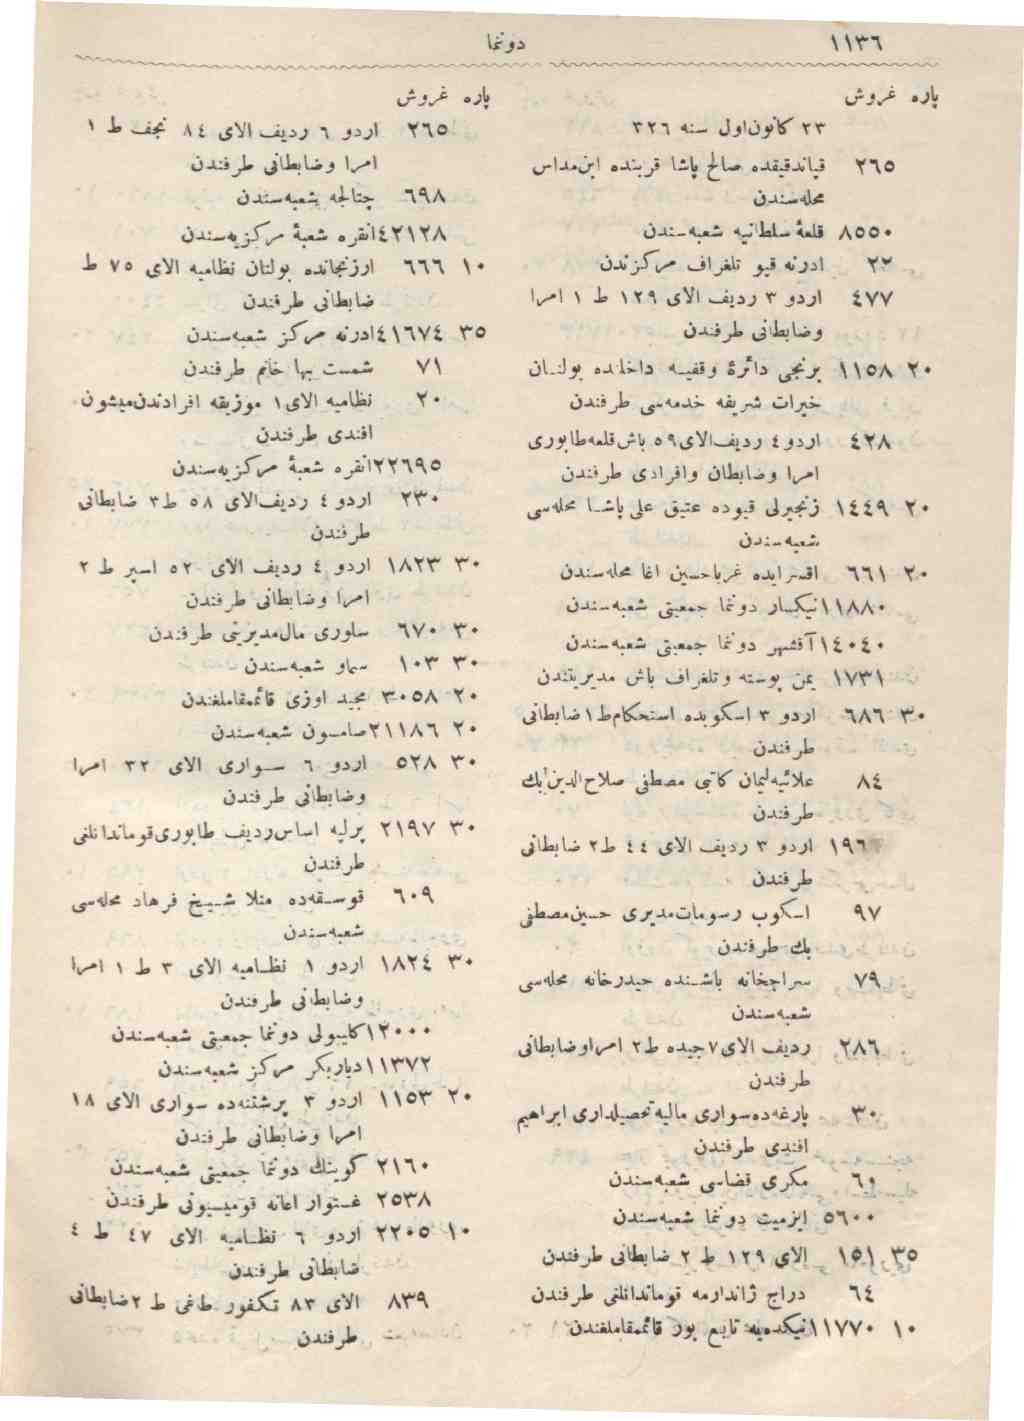 ١١٣٦
دوننما
پاره غروش
٢٣ كانون‌اول سنه ٣٢٦
٢٦٥ قپاندقيقده صالح پاشا قربنده ابن‌مداس
محله‌سندن
٨٥٥٠ قلعهٔ سلطانيه شعبه‌سندن
٢٢ ادرنه قپو تلغراف مركزندن
٤٧٧ اردو ٣ رديف الاى ١٢٩ ط ١ امرا
وضابطانى طرفندن
٢٠ ١١٥٨ برنجى دائرهٔ وقفيه داخلنده بولنان
خيرات شريفه خدمه‌سى طرفندن
٤٢٨ اردو ٤ رديف‌الاى ٥٩ باش‌قلعه‌طابورى
امرا وضابطان وافرادى طرفندن
٢٠ ١٤٤٩ زنجيرلى قپوده عتيق على پاشا محله‌سى
شعبه‌سندن
٢٠ ٦٦١ اقسرايده غرباحسين اغا محله‌سندن
١١٨٨٠ نيكسار دوننما جمعيتى شعبه‌سندن
١٤٠٤٠ آقشهر دوننما جمعيتى شعبه‌سندن
١٧٣١ يمن پوسته وتلغراف باش مديريتندن
٣٠ ٦٨٦ اردو ٣ اسكوبده استحكام‌ط ١ ضابطانى
طرفندن
٨٤ علائيه‌ليمان كاتبى مصطفى صلاح‌الدين‌بك
طرفندن
١٩٦ اردو ٣ رديف الاى ٤٤ ط ٢ ضابطانى
طرفندن
٩٧ اسكوب رسومات‌مديرى حسين‌مصطفى
بك طرفندن
٧٩ سراجخانه باشنده حيدرخانه محله‌سى
شعبه‌سندن
٢٨٦ رديف الاى ٧ جيده ط ٢ امراوضابطانى
طرفندن
٣٠ پارغه‌ده‌سوارى ماليه‌تحصيلدارى ابراهيم
افندى طرفندن
٦٠ مكرى قضاسى شعبه‌سندن
٥٦٠٠ ايزميت دوننما شعبه‌سندن
٣٥ ١٥١ الاى ١٢٩ ط ٢ ضابطانى طرفندن
٦٤ دراج ژاندارمه قوماندانلغى طرفندن
١٠ ١١٧٧٠ نيكده‌يه تابع بور قائممقاملغندن
پاره غروش
٢٦٥ اردو ٦ رديف الاى ٨٤ نجف ط ١
امرا وضابطانى طرفندن
٦٩٨ چتالجه شعبه‌سندن
٤٢١٢٨ انقره شعبهٔ مركزيه‌سندن
١٠ ٦٦٦ ارزنجانده بولنان نظاميه الاى ٧٥ ط
ضابطانى طرفندن
٣٥ ٤١٦٧٤ ادرنه مركز شعبه‌سندن
٧١ شمست بها خانم طرفندن
٢٠ نظاميه الاى ١ موزيقه افرادندن‌ميشون
افندى طرفندن
٢٢٦٩٥ انقره شعبهٔ مركزيه‌سندن
٢٣٠ اردو ٤ رديف‌الاى ٥٨ ط ٣ ضابطانى
طرفندن
٣٠ ١٨٢٣ اردو ٤ رديف الاى ٥٢ اسبر ط ٢
امرا وضابطانى طرفندن
٣٠ ٦٧٠ سلورى مال‌مديريتى طرفندن
٣٠ ١٠٣ سماو شعبه‌سندن
٢٠ ٣٠٥٨ مجيد اوزى قائممقاملغندن
٢٠ ٢١١٨٦ صامسون شعبه‌سندن
٣٠ ٥٢٨ اردو ٦ سوارى الاى ٣٢ امرا
وضابطانى طرفندن
٣٠ ٢١٩٧ پرلپه اساس‌رديف طابورى‌قوماندانلغى
طرفندن
٦٠٩ قوسقه‌ده منلا شيخ فرهاد محله‌سى
شعبه‌سندن
٣٠ ١٨٢٤ اردو ١ نظاميه الاى ٣ ط ١ امرا
وضابطانى طرفندن
١٢٠٠٠ كليبولى دوننما جمعيتى شعبه‌سندن
١١٣٧٢ دياربكر مركز شعبه‌سندن
٢٠ ١١٥٣ اردو ٣ پرشتنه‌ده سوارى الاى ١٨
امرا وضابطانى طرفندن
٢١٦٠ كوينك دوننما جمعيتى شعبه‌سندن
٢٥٣٨ غستوار اعانه قوميسيونى طرفندن
١٠ ٢٢٠٥ اردو ٦ نظاميه الاى ٤٧ ط ٤
ضابطانى طرفندن
٨٣٩ الاى ٨٣ تكفور طاغى ط ٢ ضابطانى
طرفندن